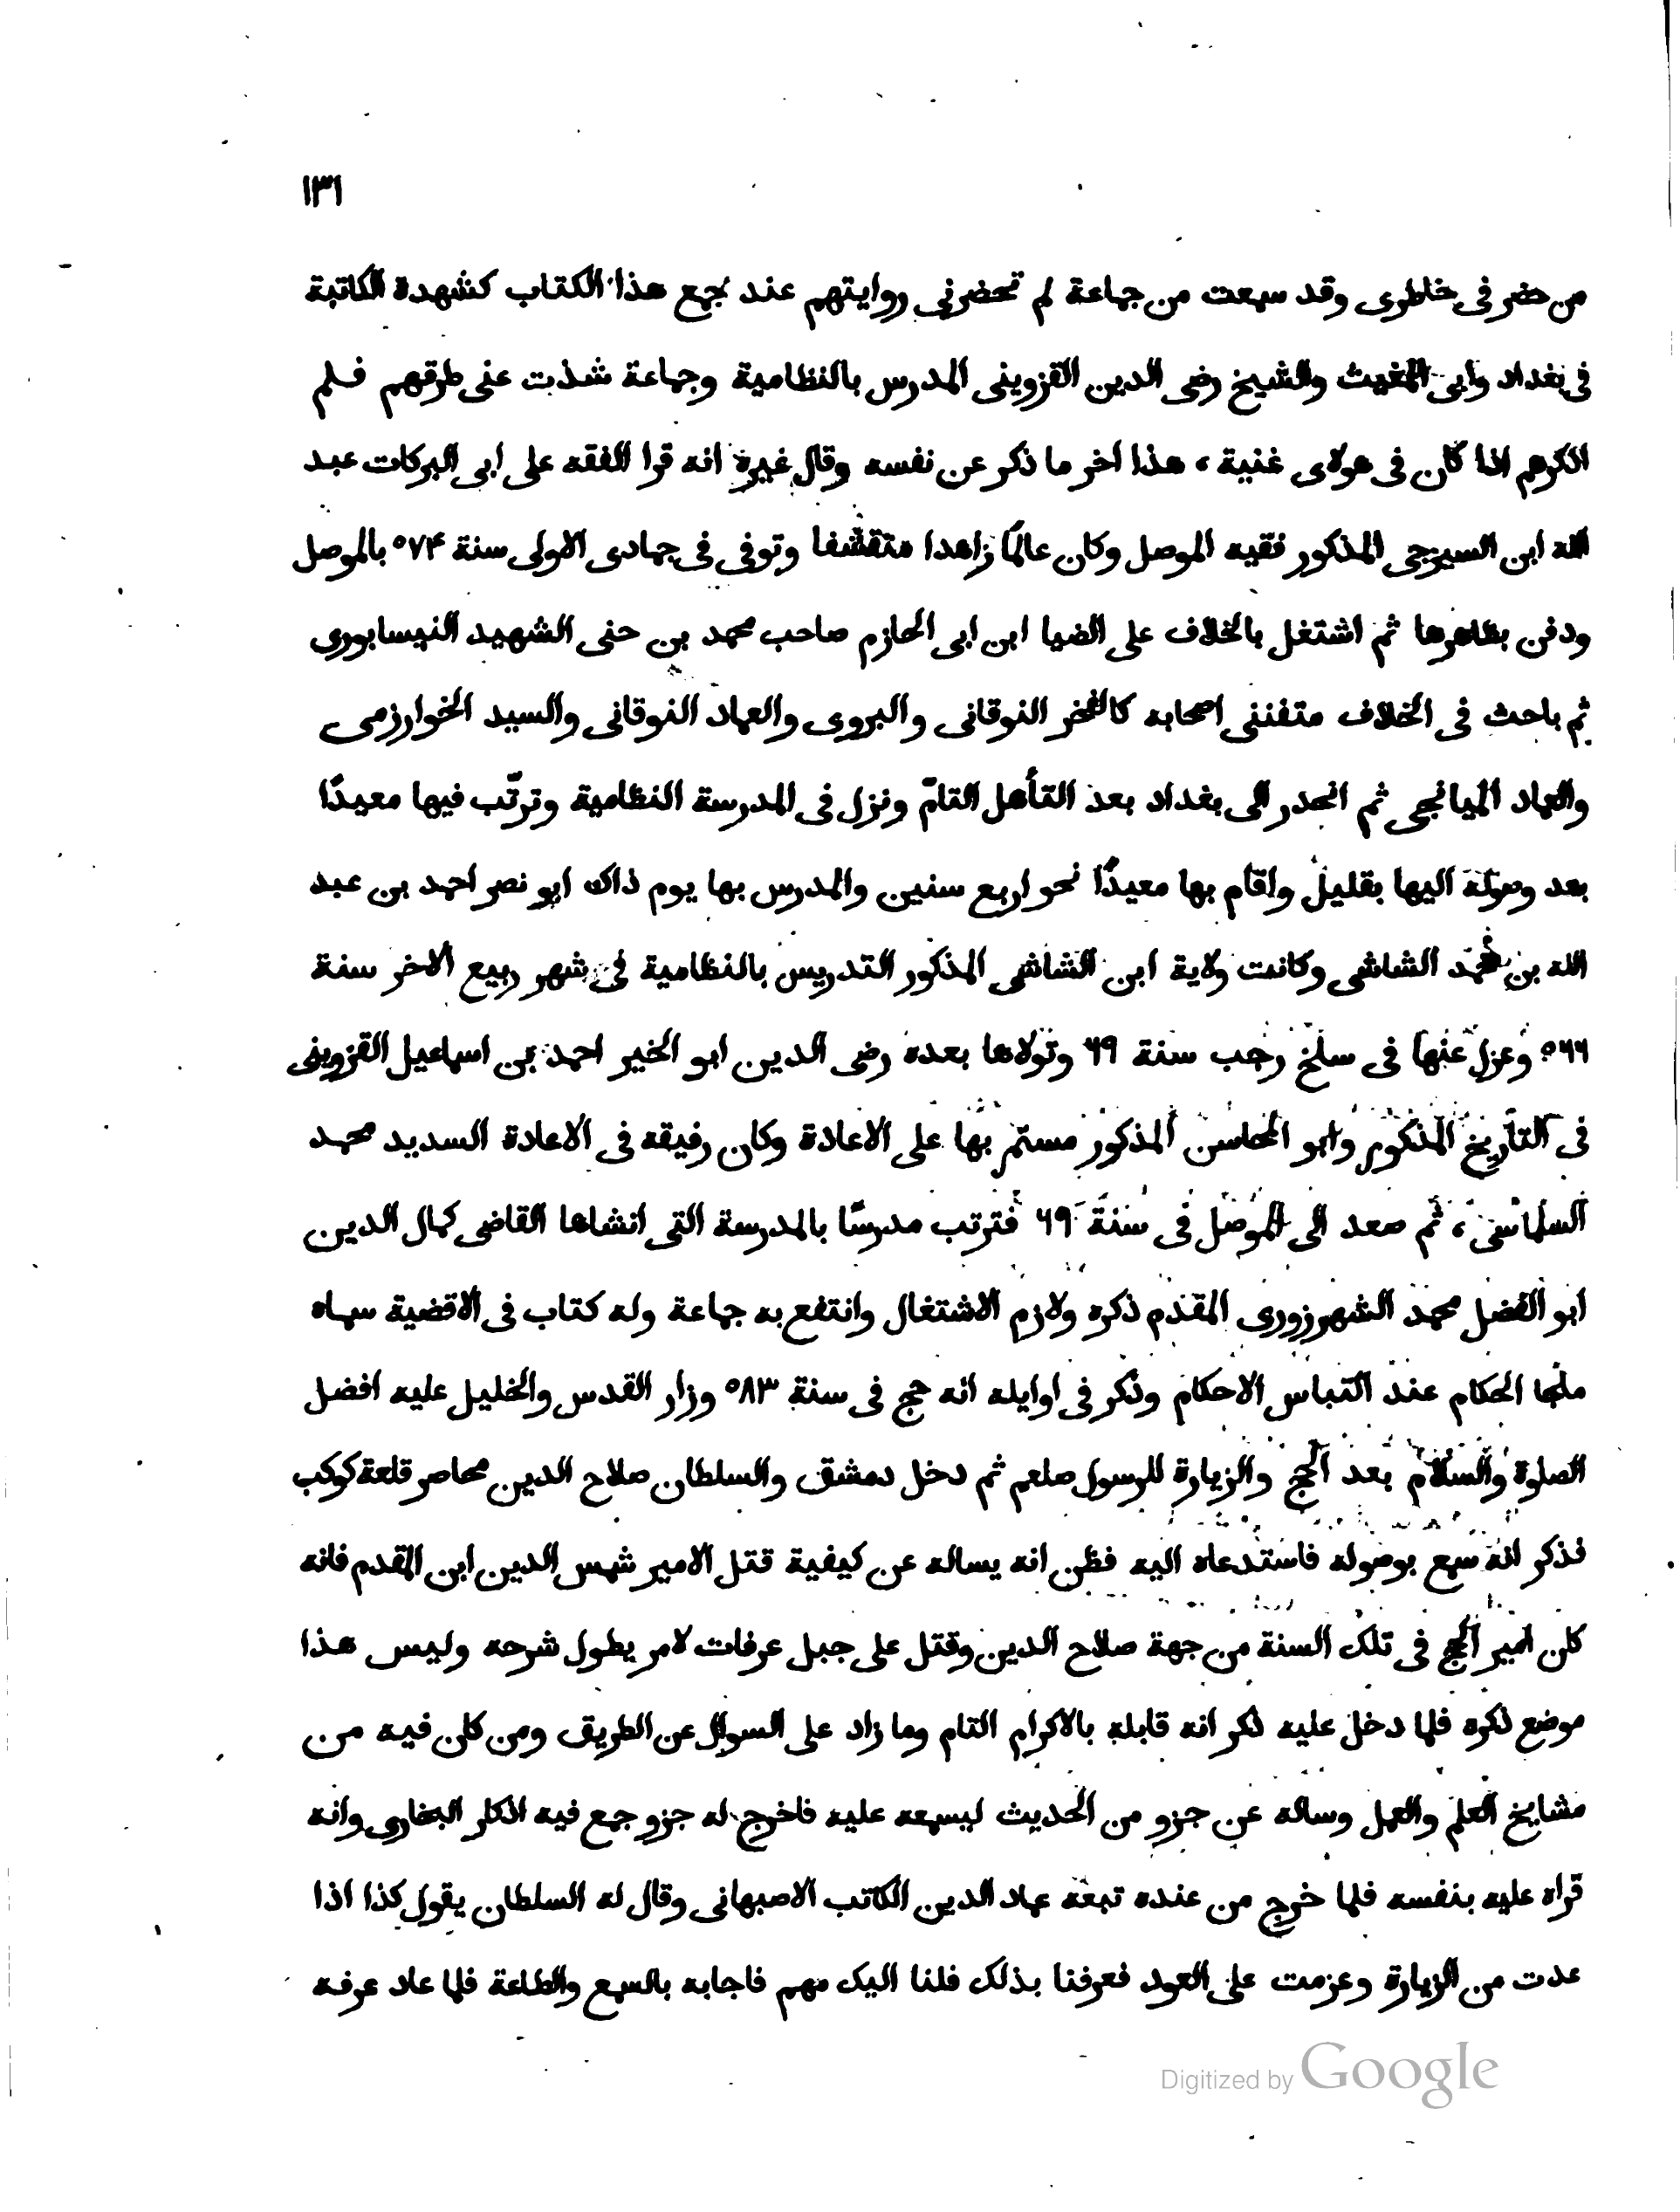 ١٣١
من حضر فى خاطرى وقد سمعت من جماعة لم تحضرنى روايتهم عند جمع هذا الكتاب كشهدة الكاتبة
فى بغداد وابى المغيث والشيخ رضى الدين القزوينى المدرس بالنظامية وجماعة شذت عنى طرقهم فلم
اذكرهم اذا كان فى هولاى غنية، هذا اخر ما ذكر عن نفسه وقال غيره انه قرا الفقه على ابى البركات عبد
الله ابن السيزجى المذكور فقيه الموصل وكان عالمًا زاهدا متقشفا وتوفى فى جمادى الاولى سنة ٥٧۴ بالموصل
ودفن بظاهرها ثم اشتغل بالخلاف على الضيا ابن ابى الحازم صاحب محمد بن حنى الشهيد النيسابورى
ثم باحث فى الخلاف متفننى اصحابه كالفخر النوقانى والبروى والعماد النوقانى والسيد الخوارزمى
والعماد الميانجى ثم انحدر الى بغداد بعد التأهل التامّ ونزل فى المدرسة النظامية وترتّب فيها معيدًا
بعد وصوله اليها بقليل واقام بها معيدًا نحو اربع سنين والمدرس بها يوم ذاك ابو نصر احمد بن عبد
الله بن محمد الشاشى وكانت ولاية ابن الشاشى المذكور التدريس بالنظامية فى شهر ربيع الاخر سنة
٥٦٦ وعزل عنها فى سلخ رجب سنة ٦٩ وتولاها بعده رضى الدين ابو الخير احمد بن اسماعيل القزوينى
فى التأريخ المذكور وابو المحاسن المذكور مستمر بها على الاعادة وكان رفيقه فى الاعادة السديد محمد
السلماسى، ثم صعد الى الموصل فى سنة ٦٩ فترتب مدرسًا بالمدرسة التى انشاها القاضى كمال الدين
ابو الفضل محمد الشهرزورى المقدم ذكره ولازم الاشتغال وانتفع به جماعة وله كتاب فى الاقضية سماه
ملجا الحكام عند التباس الاحكام وذكر فى اوايله انه حج فى سنة ٥٨٣ وزار القدس والخليل عليه افضل
الصلوة والسلام بعد الحج والزيارة للرسول صلعم ثم دخل دمشق والسلطان صلاح الدين محاصر قلعة كوكب
فذكر انه سمع بوصوله فاستدعاه اليه فظن انه يساله عن كيفية قتل الامير شمس الدين ابن المقدم فانه
كان امير الحج فى تلك السنة من جهة صلاح الدين وقتل على جبل عرفات لامر يطول شرحه وليس هذا
موضع ذكره فلما دخل عليه ذكر انه قابله بالاكرام التام وما زاد على السوال عن الطريق ومن كان فيه من
مشايخ العلم والعمل وساله عن جزو من الحديث ليسمعه عليه فاخرج له جزو جمع فيه اذكار البخارى وانه
قراه عليه بنفسه فلما خرج من عنده تبعه عماد الدين الكاتب الاصبهانى وقال له السلطان يقول كذا اذا
عدت من الزيارة وعزمت على العود فعرفنا بذلك فلنا اليك مهم فاجابه بالسمع والطاعة فلما عاد عرفه
Digitized by Google